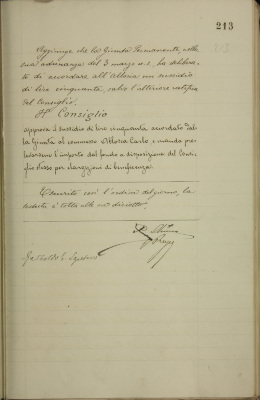 213
Aggiunge che la Giunta Permanente, nella
sua adunanza del 3 marzo u.s. ha delibera-
to di accordare all'Alloria un sussidio
di lire cinquanta, salvo l'ulteriore ratifica
del Consiglio.
Il Consiglio
approva il sussidio di lire cinquanta accordato dal-
la Giunta al commesso Carlo, e manda pre-
levarsene l'importo dal fondo a disposizione del Consi-
glio stesso per elargizioni di beneficenza.
Esaurito così l'ordine del giorno, la
seduta è tolta alle ore diciotto.